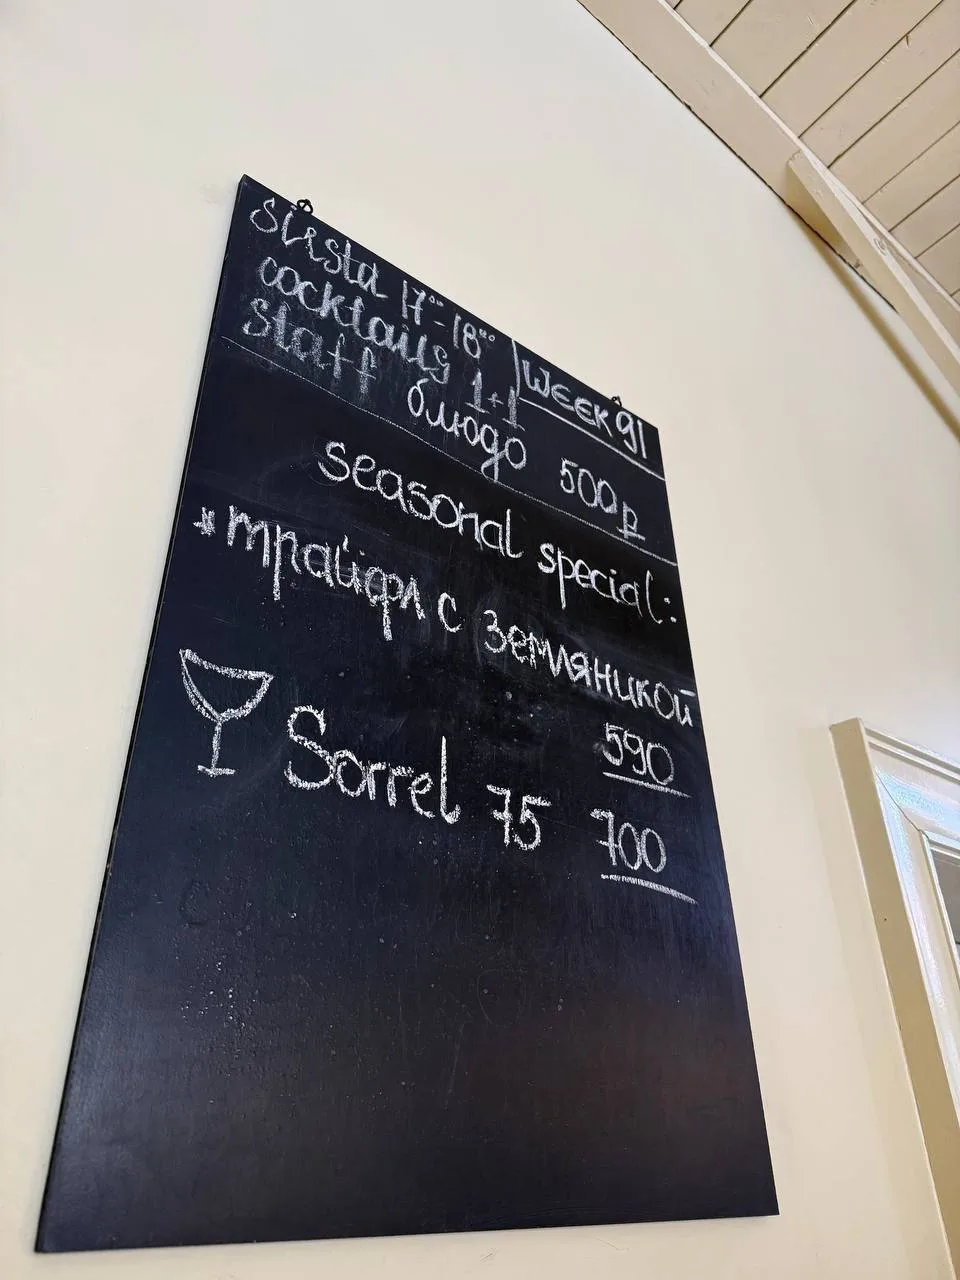 siesta 17⁰⁰-18⁰⁰
cocktails 1+1
WEEK 91
staff блюдо 500р
seasonal special:
*трайфл с земляникой
590
Sorrel 75 700